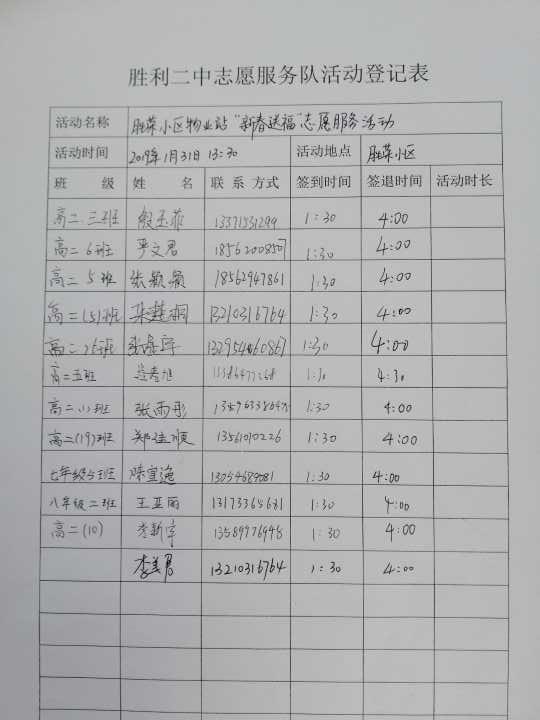 胜利二中志愿服务队活动登记表
活动名称 胜荣小区物业站“新春送福”志愿服务活动
活动时间 2019年1月31日 13:30 活动地点 胜荣小区
班 级 姓 名 联 系 方式 签到时间 签退时间 活动时长
高二.三班 1:30 4:00
高二 6班 严文君 1:30 4:00
高二 5 班 张颖颖 18562947861 1:30 4:00
高二(5)班 13210316764 1:30 4:00
高二.26班 1:30 4:00
高二五班 1:30 4:30
班 张雨彤 1:30 4:00
高二(19)班 13561010226 1:30 4:00
七年级5班 陈宜逸 13054689081 1:30 4:00
八年级二班 王亚丽 13173365681 1:30 4:00
高二(10) 李新宇 13589976948 1:30 4:00
李美君 13210316764 1:30 4:00